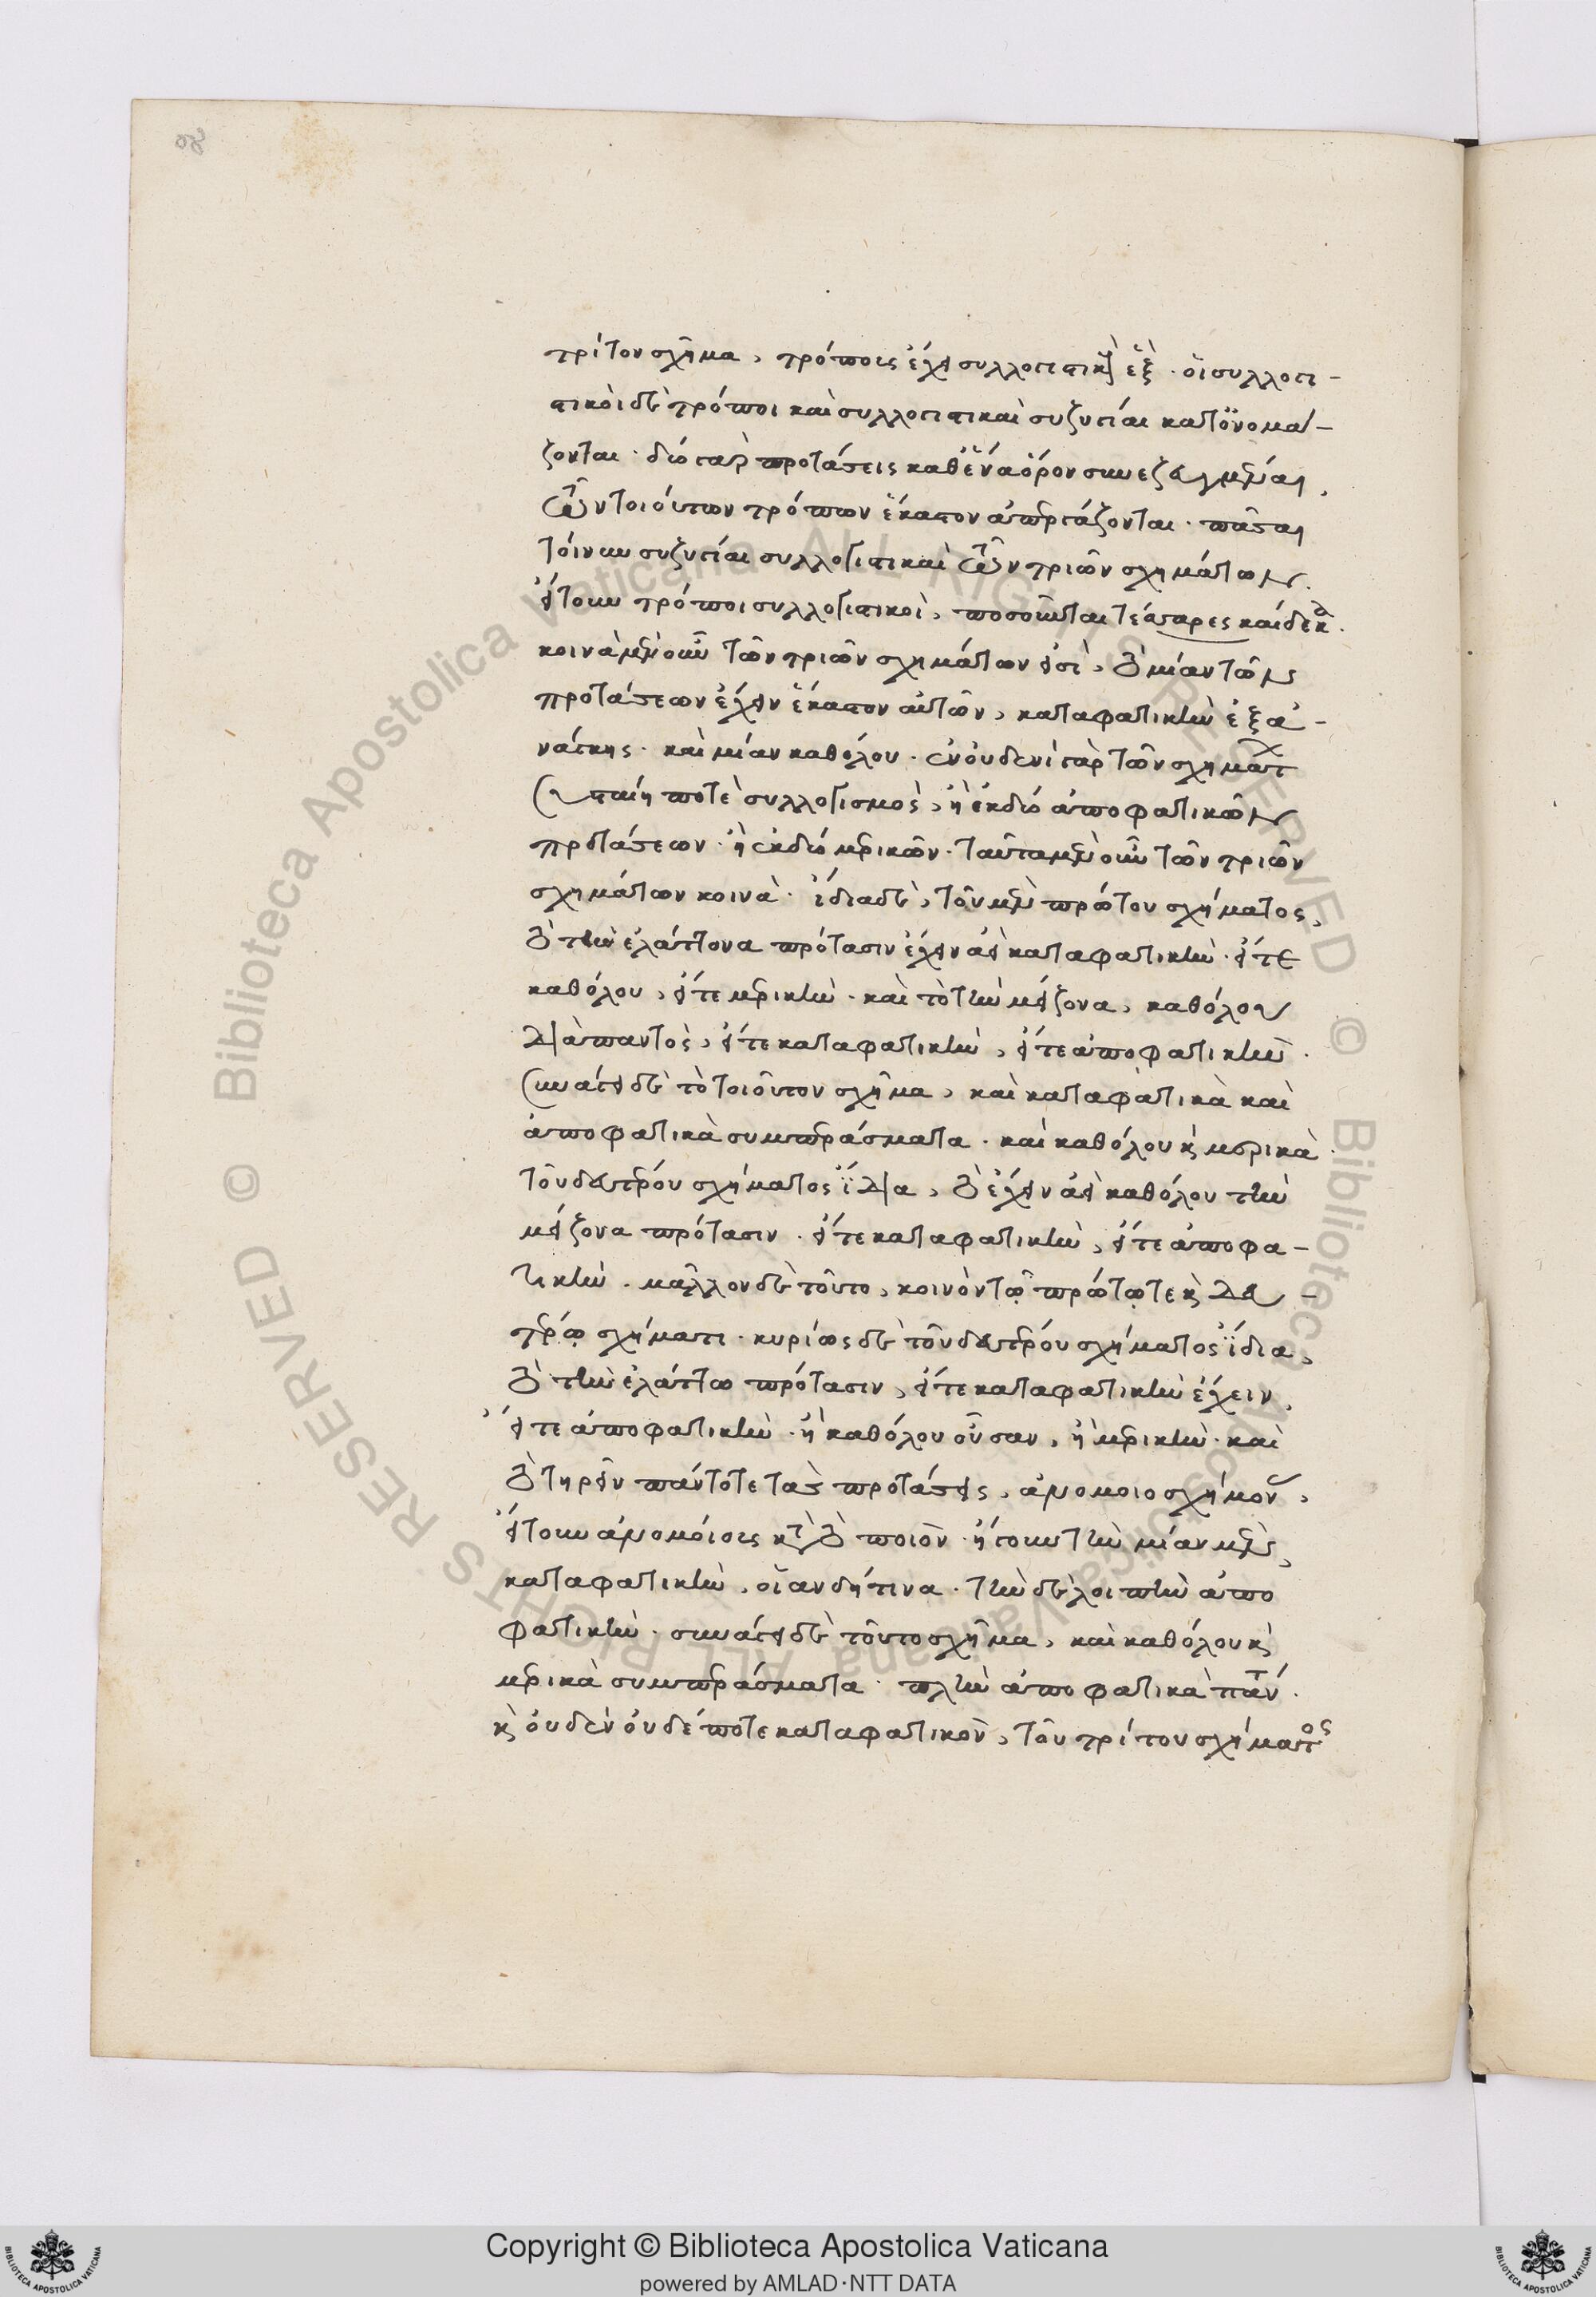 τρίτον σχῆμα, τρόπους ἔχει συλλογιστικοὺς ἓξ. οἱ συλλογι-
στικοὶ δὲ τρόποι καὶ συλλογιστικαὶ συζυγίαι κατονομά-
ζονται. δύο γὰρ προτάσεις καθ' ἕνα ὅρον συνεζευγμέναι,
τῶν τοιούτων τρόπων ἕκαστον ἀπεργάζονται. πᾶσαι
τοίνυν συζυγίαι συλλογιστικαὶ τῶν τριῶν σχημάτων.
εἴτουν τρόποι συλλογιστικοὶ, ποσοῦνται τέσσαρες καίδεκα.
κοινὰ μὲν οὖν τῶν τριῶν σχημάτων εἰσὶ, τὸ μίαν τῶν
προτάσεων ἔχειν ἕκαστον αὐτῶν, καταφατικὴν ἐξ ἀ-
νάγκης. καὶ μίαν καθόλου. ἐν οὐδενὶ γὰρ τῶν σχημάτων
σταίη ποτὲ συλλογισμὸς, ἢ ἐκ δύο ἀποφατικῶν
προτάσεων. ἢ ἐκ δύο μερικῶν. ταῦτα μὲν οὖν τῶν τριῶν
σχημάτων κοινὰ. ἴδια δὲ, τοῦ μὲν πρώτου σχήματος,
τὸ τὴν ἐλάττονα πρότασιν ἔχειν ἀεὶ καταφατικὴν. εἴτε
καθόλου, εἴτε μερικὴν. καὶ τὸ τὴν μείζονα, καθόλου
διαπαντὸς, εἴτε καταφατικὴν, εἴτε ἀποφατικὴν.
συνάγει δὲ τὸ τοιοῦτον σχῆμα, καὶ καταφατικὰ καὶ
ἀποφατικὰ συμπεράσματα. καὶ καθόλου καὶ μερικὰ.
τοῦ δευτέρου σχήματος ἴδια, τὸ ἔχειν ἀεὶ καθόλου τὴν
μείζονα πρότασιν. εἴτε καταφατικὴν, εἴτε ἀποφα-
τικὴν. μᾶλλον δὲ τοῦτο, κοινὸν τῷ πρώτῳ τε καὶ δευ-
τέρῳ σχήματι. κυρίως δὲ τοῦ δευτέρου σχήματος ἴδια,
τὸ τὴν ἐλάττω πρότασιν, εἴτε καταφατικὴν ἔχειν,
εἴτε ἀποφατικὴν. ἢ καθόλου οὖσαν, ἢ μερικὴν. καὶ
τὸ τηρεῖν πάντοτε τὰς προτάσεις, ἀνομοιοσχήμονας,
εἴτουν ἀνομοίους κατὰ τὸ ποιὸν. ἤγουν τὴν μίαν μὲν,
καταφατικὴν, οἵαν δήτινα. τὴν δὲ λοιπὴν ἀπο
φατικὴν. συνάγει δὲ τοῦτο σχῆμα, καὶ καθόλου καὶ
μερικὰ συμπεράσματα. πλὴν ἀποφατικὰ πάντα.
καὶ οὐδὲν οὐδέποτε καταφατικὸν, τοῦ τρίτου σχήματος